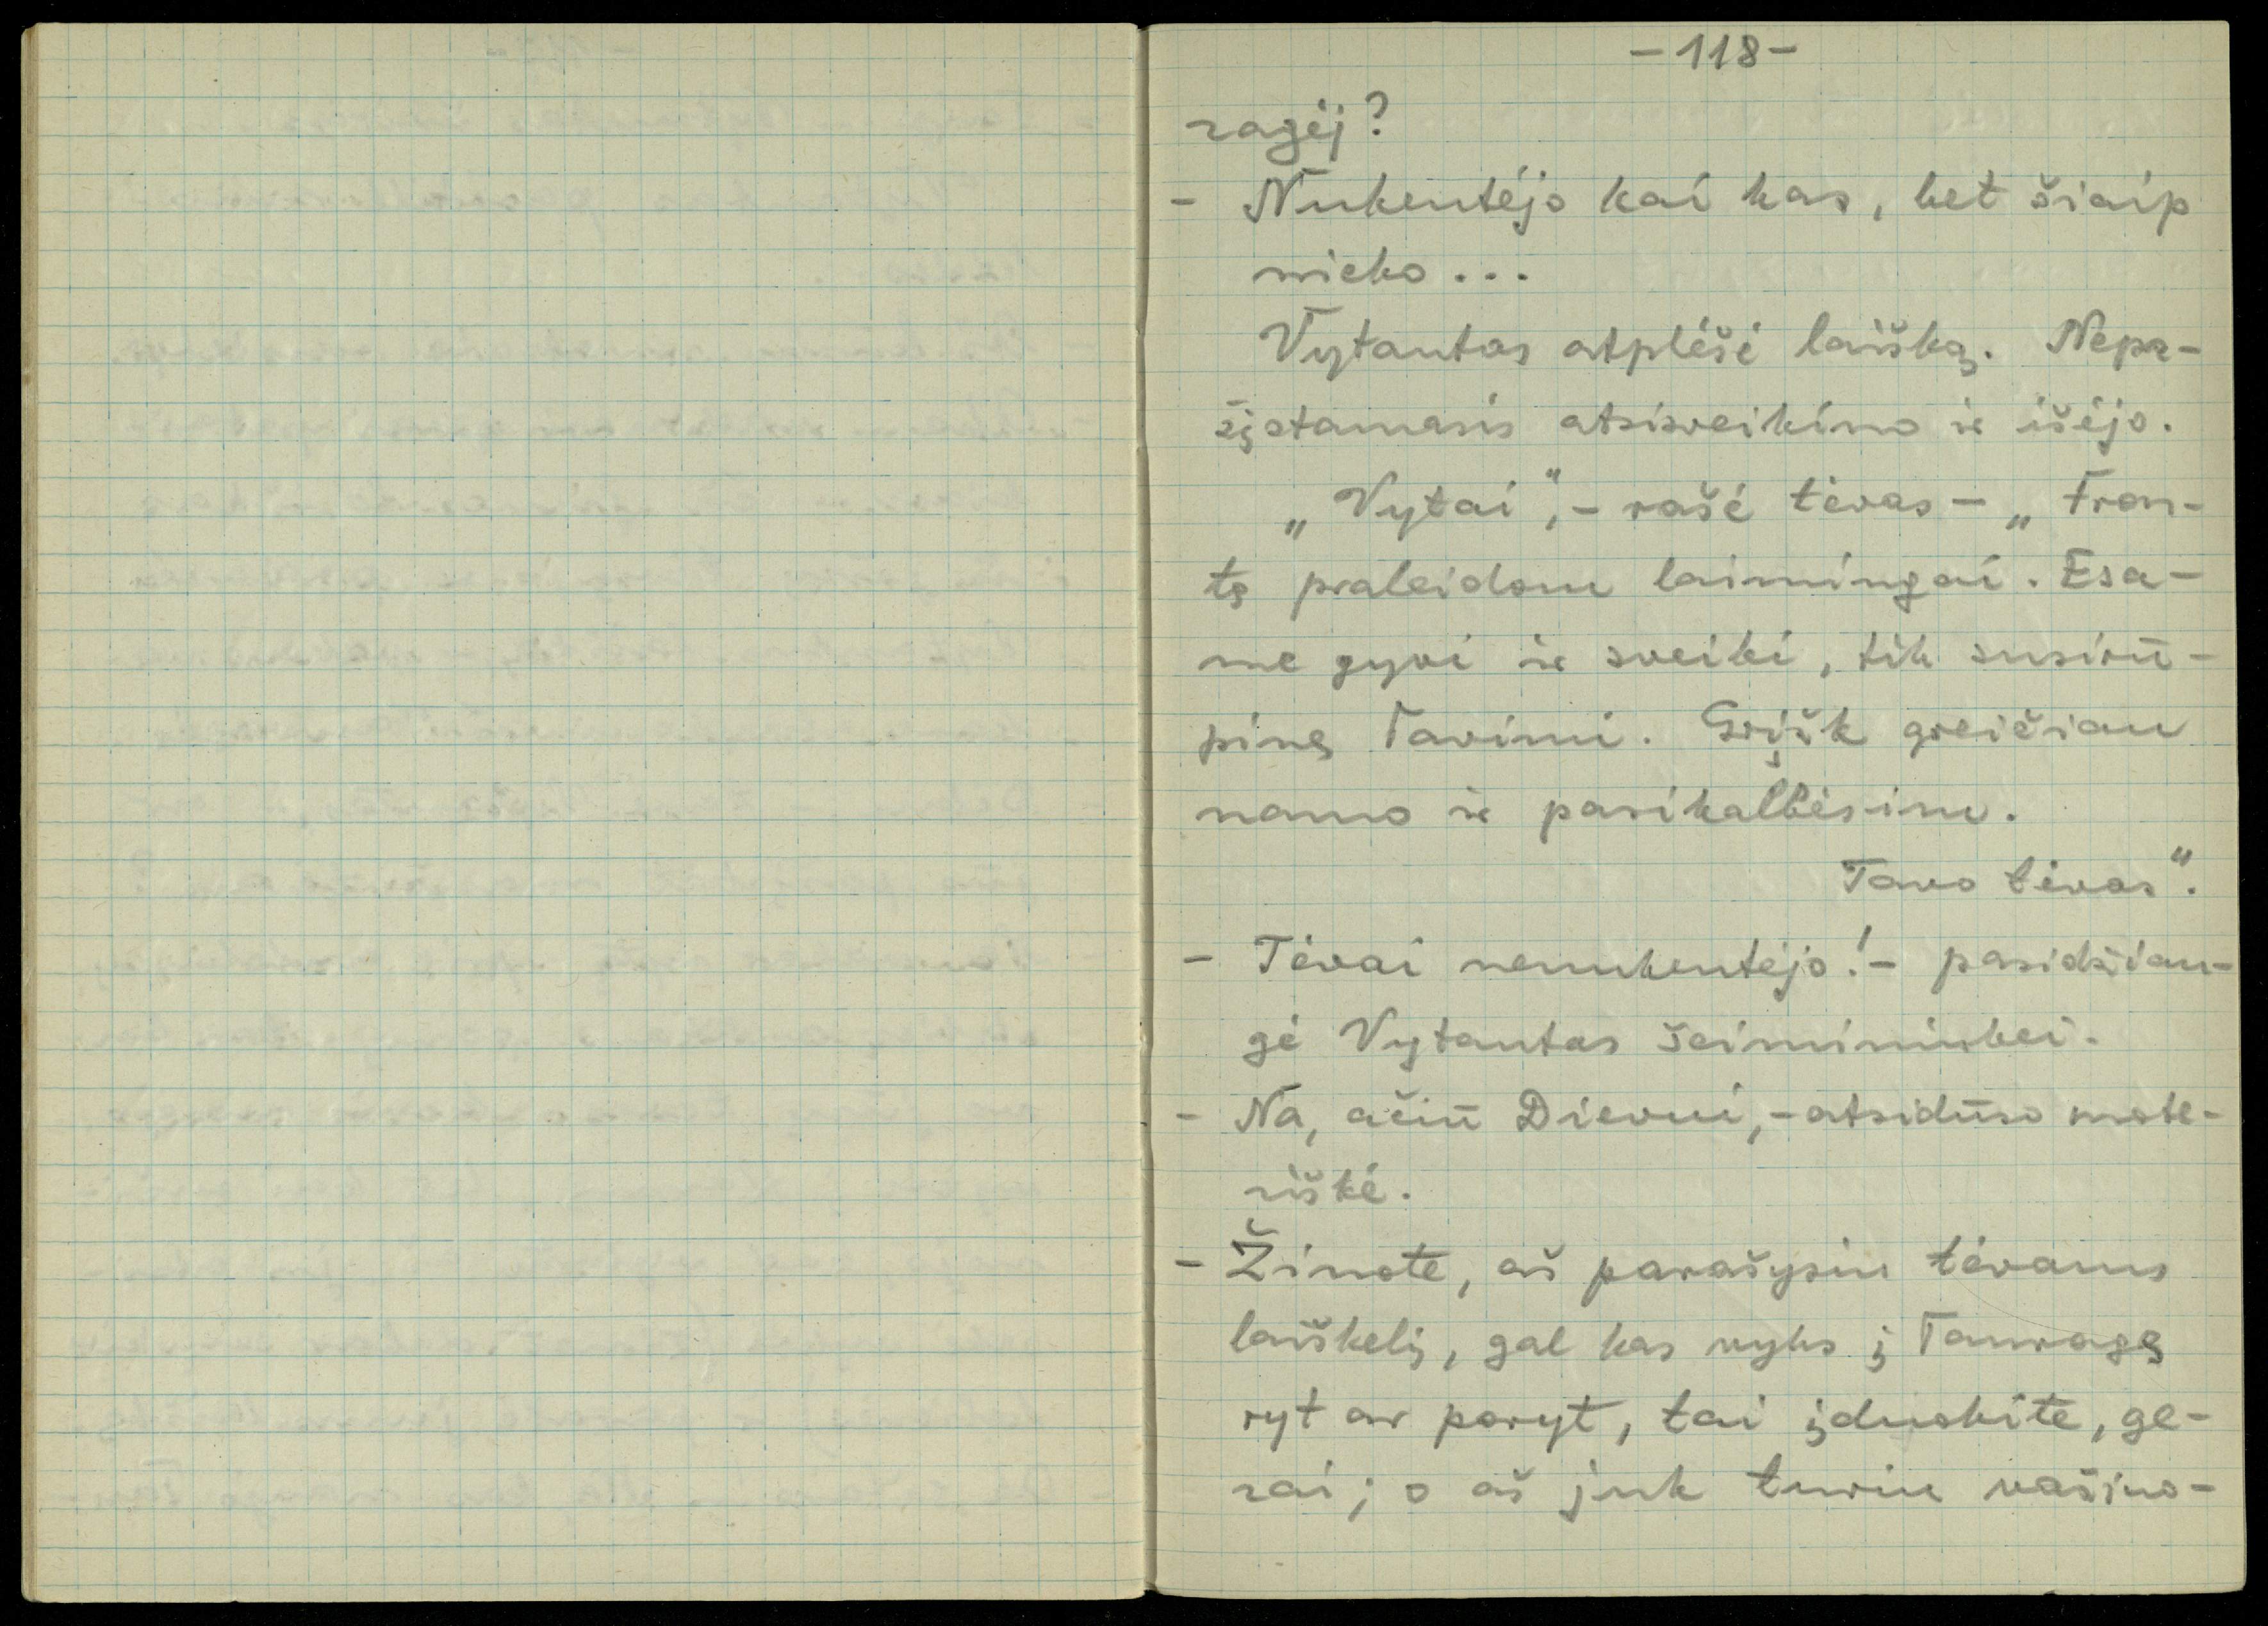 -118-
ragėj?
- Nukentėjo kai kas, bet šiaip
nieko...
Vytautas atplėšė laišką. Nepa-
žįstamasis atsisveikino ir išėjo.
„Vytai“, - rašė tėvas - „Fron-
tą praleidom laimingai. Esa-
me gyvi ir sveiki, tik susirū-
pinę Tavimi. Grįšk greičiau
namo ir pasikalbėsim.
Tavo tėvas“.
- Tėvai nenukentėjo! - pasidžiau-
gė Vytautas šeimininkei.
- Na, ačiū Dievui, - atsiduso mote-
riškė.
- Žinote, aš parašysiu tėvams
laiškelį, gal kas vyks į Tauragę
ryt ar poryt, tai įduokite, ge-
rai; o aš juk turiu važiuo-